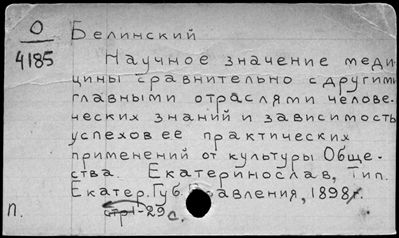 О
4185
Белинский
Научное значение меди-
цины сравнительно с другими
главными отраслями челове-
ческих знаний и зависимость
успехов ее практических
применений от культуры Обще-
ства. Екатеринослав, Тип.
Екатер. Губ. Правления, 1898г.
стр 1-29 с.
п.